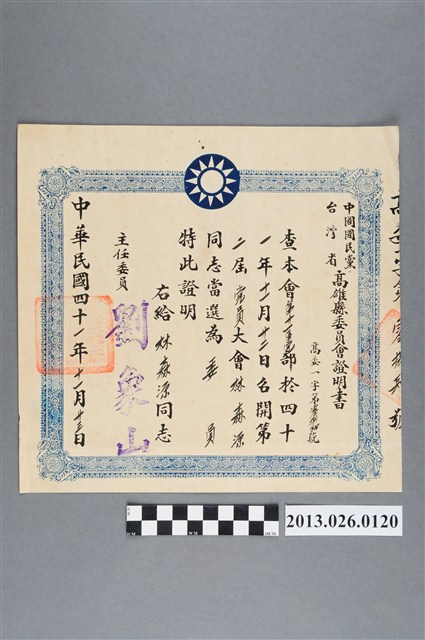 中國國民黨
台灣省
高雄縣委員會證明書
高委一字第號
查本會第十一區黨部於四十
一年十一月廿二日召開第
二屆黨員大會林森源
同志當選為委員
特此證明
右給林森源同志
主任委員
劉象山
中華民國四十一年十一月廿三日
2013.026.0120